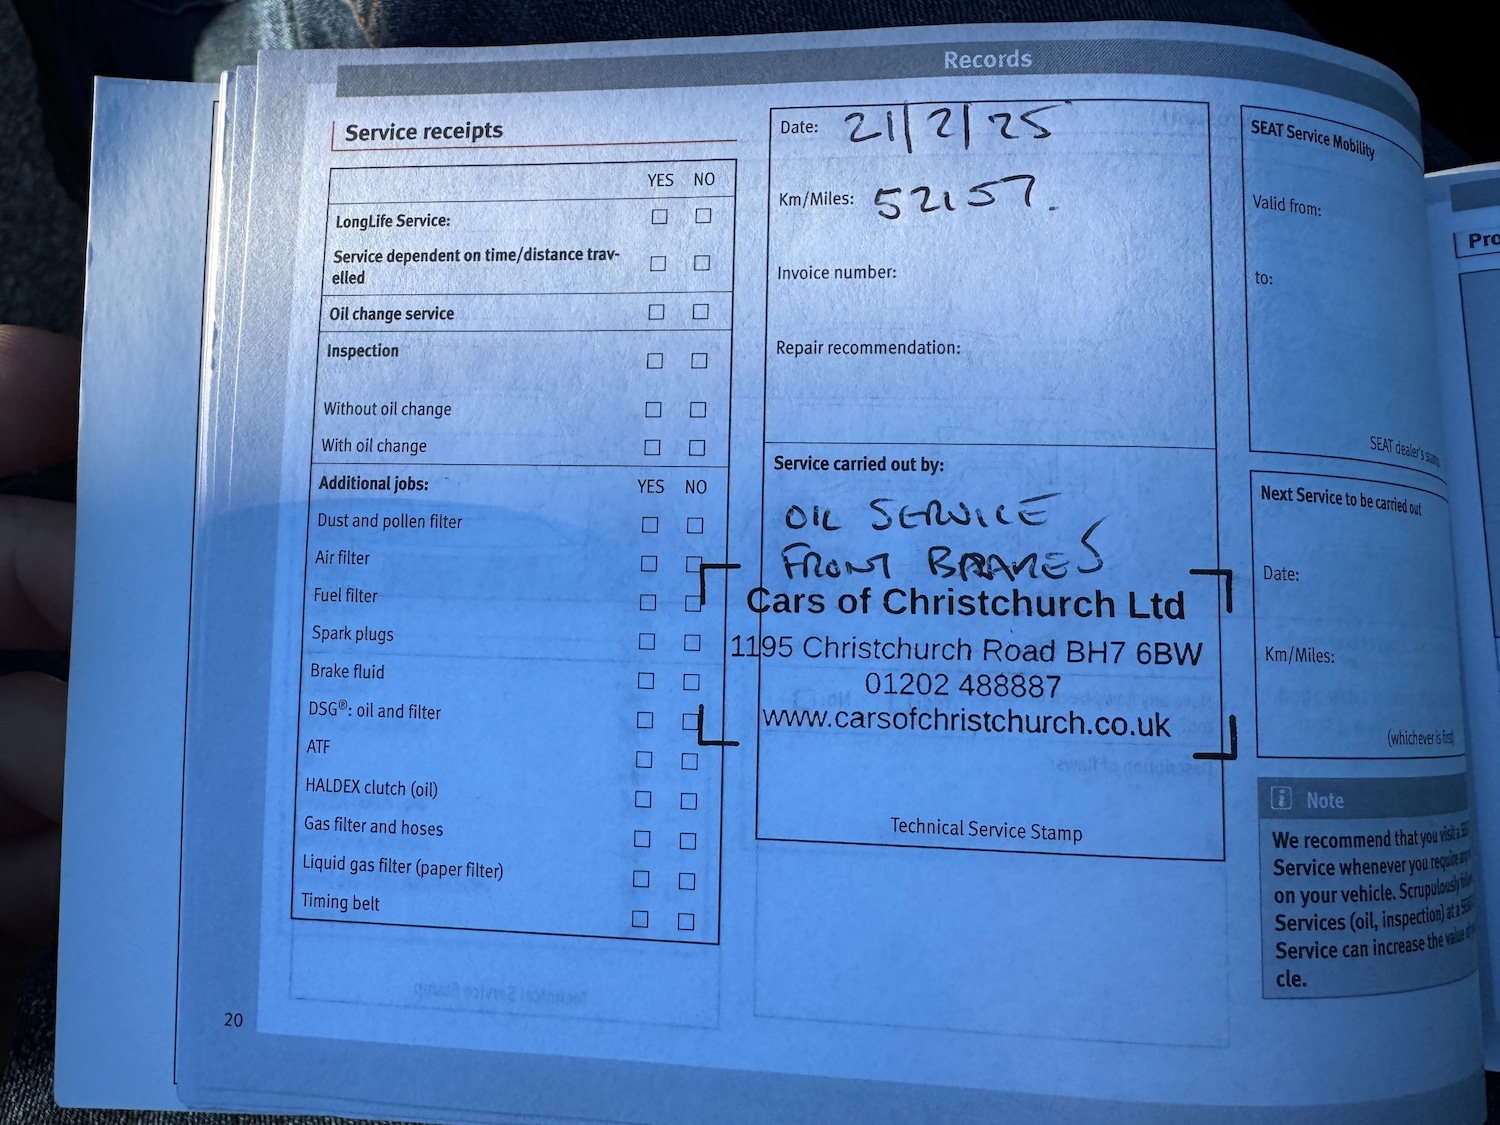 Records
Service receipts
YES NO
LongLife Service:
Service dependent on time/distance trav-
elled
Oil change service
Inspection
Without oil change
With oil change
Additional jobs: YES NO
Dust and pollen filter
Air filter
Fuel filter
Spark plugs
Brake fluid
DSG®: oil and filter
ATF
HALDEX clutch (oil)
Gas filter and hoses
Liquid gas filter (paper filter)
Timing belt
20
Date: 21/2/25
Km/Miles: 52157.
Invoice number:
Repair recommendation:
Service carried out by:
OIL SERVICE
FRONT BRAKES
Cars of Christchurch Ltd
1195 Christchurch Road BH7 6BW
01202 488887
www.carsofchristchurch.co.uk
Technical Service Stamp
SEAT Service Mobility
Valid from:
to:
SEAT dealer's stamp
Next Service to be carried out
Date:
Km/Miles:
(whichever is first)
Note
We recommend that you visit a
Service whenever you require
on your vehicle. Scrupulously
Services (oil, inspection) at a SEAT
Service can increase the value of
cle.
Pro